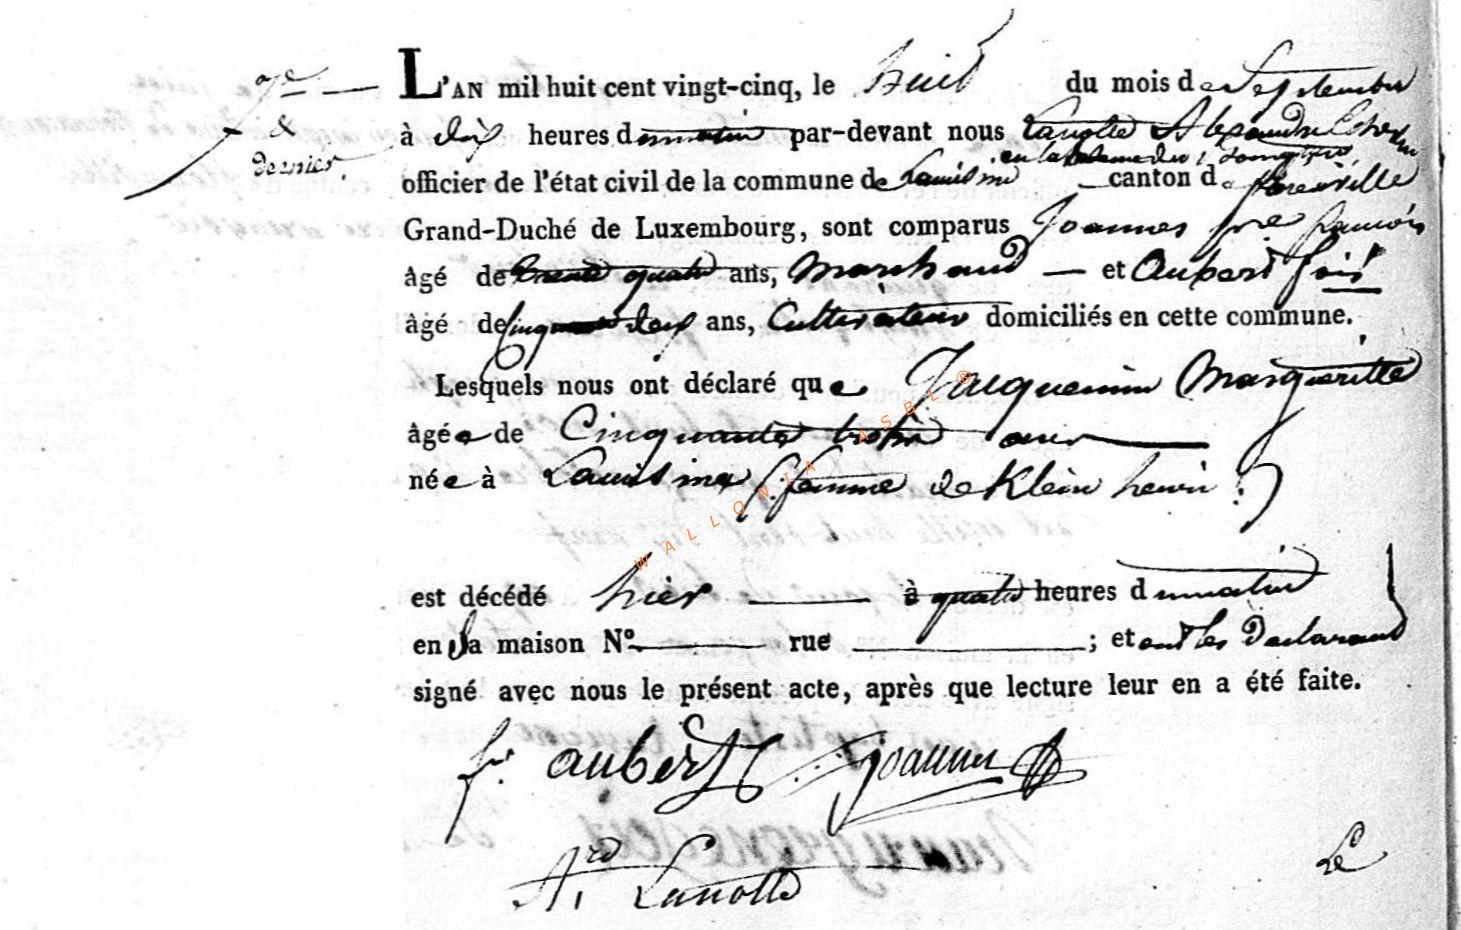 7e
&
dernier.
L'AN mil huit cent vingt-cinq, le huit du mois de Septembre
à dix heures du matin par-devant nous Lanotte Alexandre Echevin
officier de l'état civil de la commune de canton de florenville
Grand-Duché de Luxembourg, sont comparus Joannes françois
âgé de trente quatre ans, Marchand — et Aubert fois
âgé de Cinquante deux ans, Cultivateur domiciliés en cette commune.
Lesquels nous ont déclaré que Jacquemin Margueritte
âgée de Cinquante trois ans
née à femme de Klein henri
est décédé hier à quatre heures du matin
en Sa maison N° rue ; et ont les Déclarants
signé avec nous le présent acte, après que lecture leur en a été faite.
fs aubert Joannes
Ard Lanotte
Le
WALLONIA ASBL ®